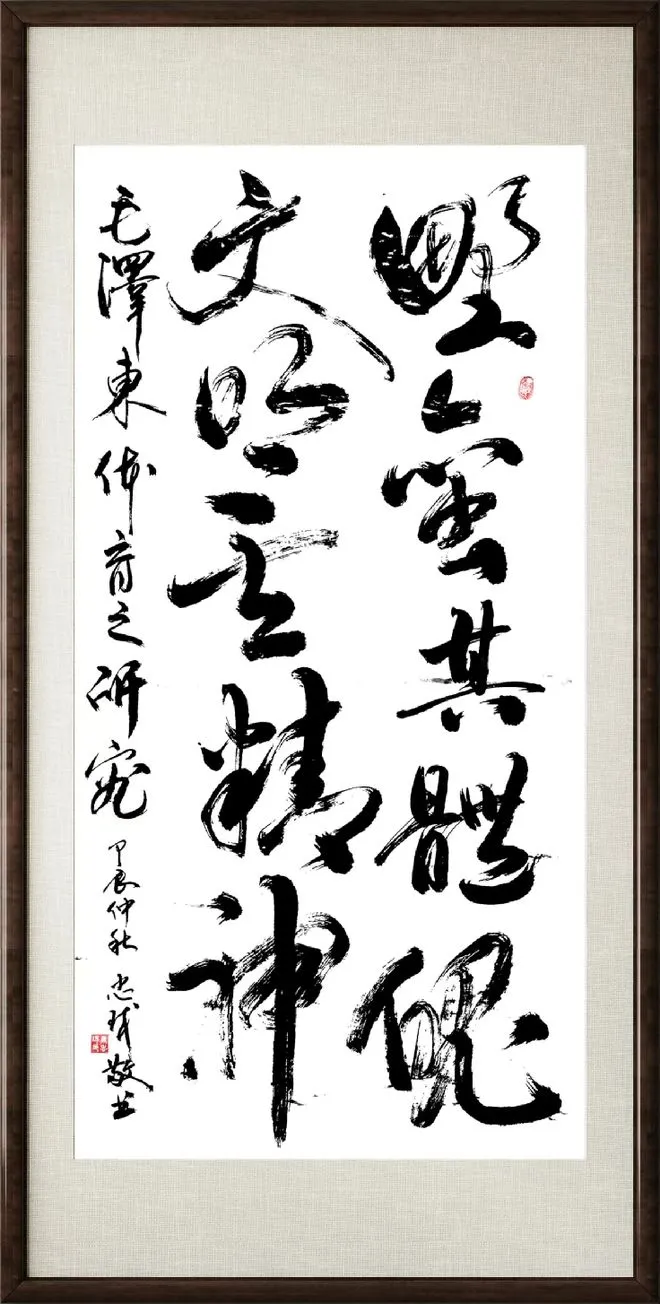 野蛮其體魄
文明其精神
毛澤東体育之研究 甲辰仲秋 忠 敬书